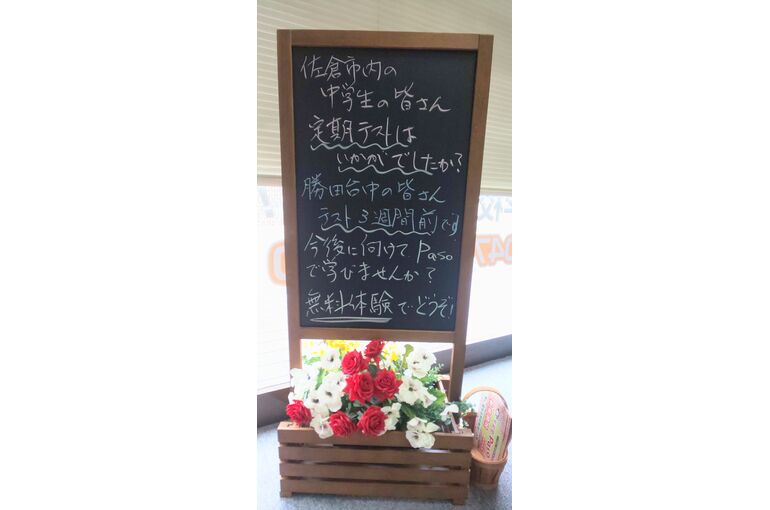 佐倉市内の
中学生の皆さん
定期テストは
いかがでしたか?
勝田台中の皆さん
テスト3週間前です
今後に向けて Paso
で学びませんか?
無料体験でどうぞ!